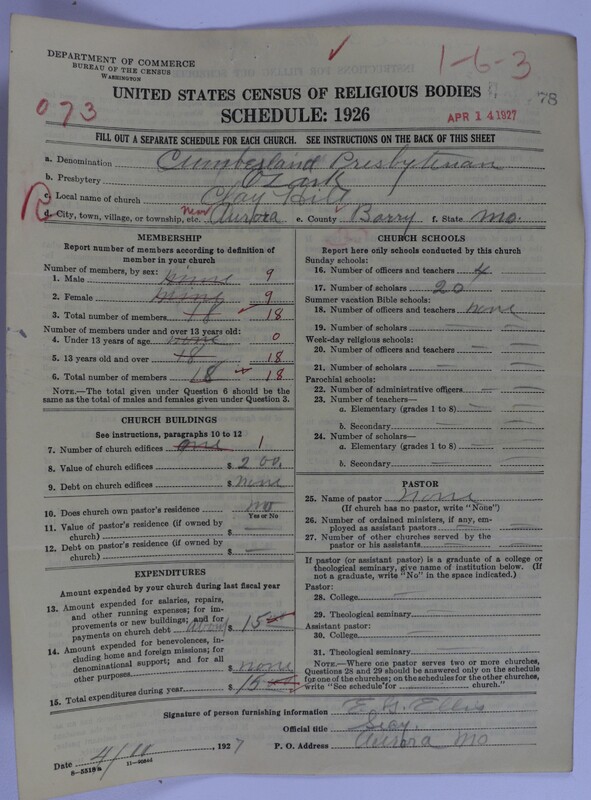 1-6-3
DEPARTMENT OF COMMERCE
BUREAU OF THE CENSUS
WASHINGTON
UNITED STATES CENSUS OF RELIGIOUS BODIES
78
073
SCHEDULE: 1926
APR 14 1927
FILL OUT A SEPARATE SCHEDULE FOR EACH CHURCH. SEE INSTRUCTIONS ON THE BACK OF THIS SHEET
a. Denomination Cumberland Presbyterian
b. Presbytery Ozark
c. Local name of church Clay Hill
d. City, town, village, or township, etc. near Aurora e. County Barry f. State Mo.
MEMBERSHIP
Report number of members according to definition of member in your church
Number of members, by sex:
1. Male nine 9
2. Female nine 9
3. Total number of members 18 18
Number of members under and over 13 years old:
4. Under 13 years of age none 0
5. 13 years old and over 18 18
6. Total number of members 18 18
NOTE.—The total given under Question 6 should be
the same as the total of males and females given under Question 3.
CHURCH BUILDINGS
See instructions, paragraphs 10 to 12
7. Number of church edifices one 1
8. Value of church edifices $ 200.
9. Debt on church edifices $ none
10. Does church own pastor's residence no
Yes or No
11. Value of pastor's residence (if owned by
church) $ —
12. Debt on pastor's residence (if owned by
church) $ —
EXPENDITURES
Amount expended by your church during last fiscal year
13. Amount expended for salaries, repairs,
and other running expenses; for im-
provements or new buildings; and for
payments on church debt about $ 15
14. Amount expended for benevolences, in-
cluding home and foreign missions; for
denominational support; and for all
other purposes $ none
15. Total expenditures during year $ 15
CHURCH SCHOOLS
Report here only schools conducted by this church
Sunday schools:
16. Number of officers and teachers 4
17. Number of scholars 20
Summer vacation Bible schools:
18. Number of officers and teachers none
19. Number of scholars —
Week-day religious schools:
20. Number of officers and teachers —
21. Number of scholars —
Parochial schools:
22. Number of administrative officers —
23. Number of teachers—
a. Elementary (grades 1 to 8) —
b. Secondary —
24. Number of scholars—
a. Elementary (grades 1 to 8) —
b. Secondary —
PASTOR
25. Name of pastor None
(If church has no pastor, write "None")
26. Number of ordained ministers, if any, em-
ployed as assistant pastors —
27. Number of other churches served by the
pastor or his assistants —
If pastor (or assistant pastor) is a graduate of a college or
theological seminary, give name of institution below. (If
not a graduate, write "No" in the space indicated.)
Pastor:
28. College —
29. Theological seminary —
Assistant pastor:
30. College —
31. Theological seminary —
NOTE.—Where one pastor serves two or more churches,
Questions 28 and 29 should be answered only on the schedule
for one of the churches; on the schedules for the other churches,
write "See schedule for church."
Signature of person furnishing information E. G. Ellis
Official title
Date 4/11, 1927 P. O. Address Aurora Mo